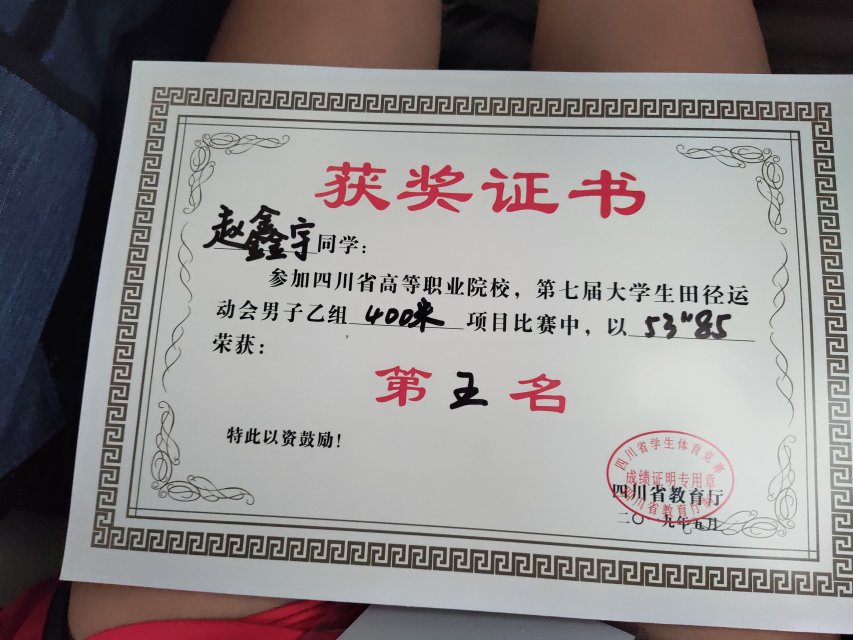 获奖证书
赵鑫宇同学：
参加四川省高等职业院校，第七届大学生田径运
动会男子乙组 400米 项目比赛中，以 53"85
荣获：
第五名
特此以资鼓励！
四川省学生体育竞赛
成绩证明专用章
四川省教育厅
四川省教育厅
二〇一九年五月